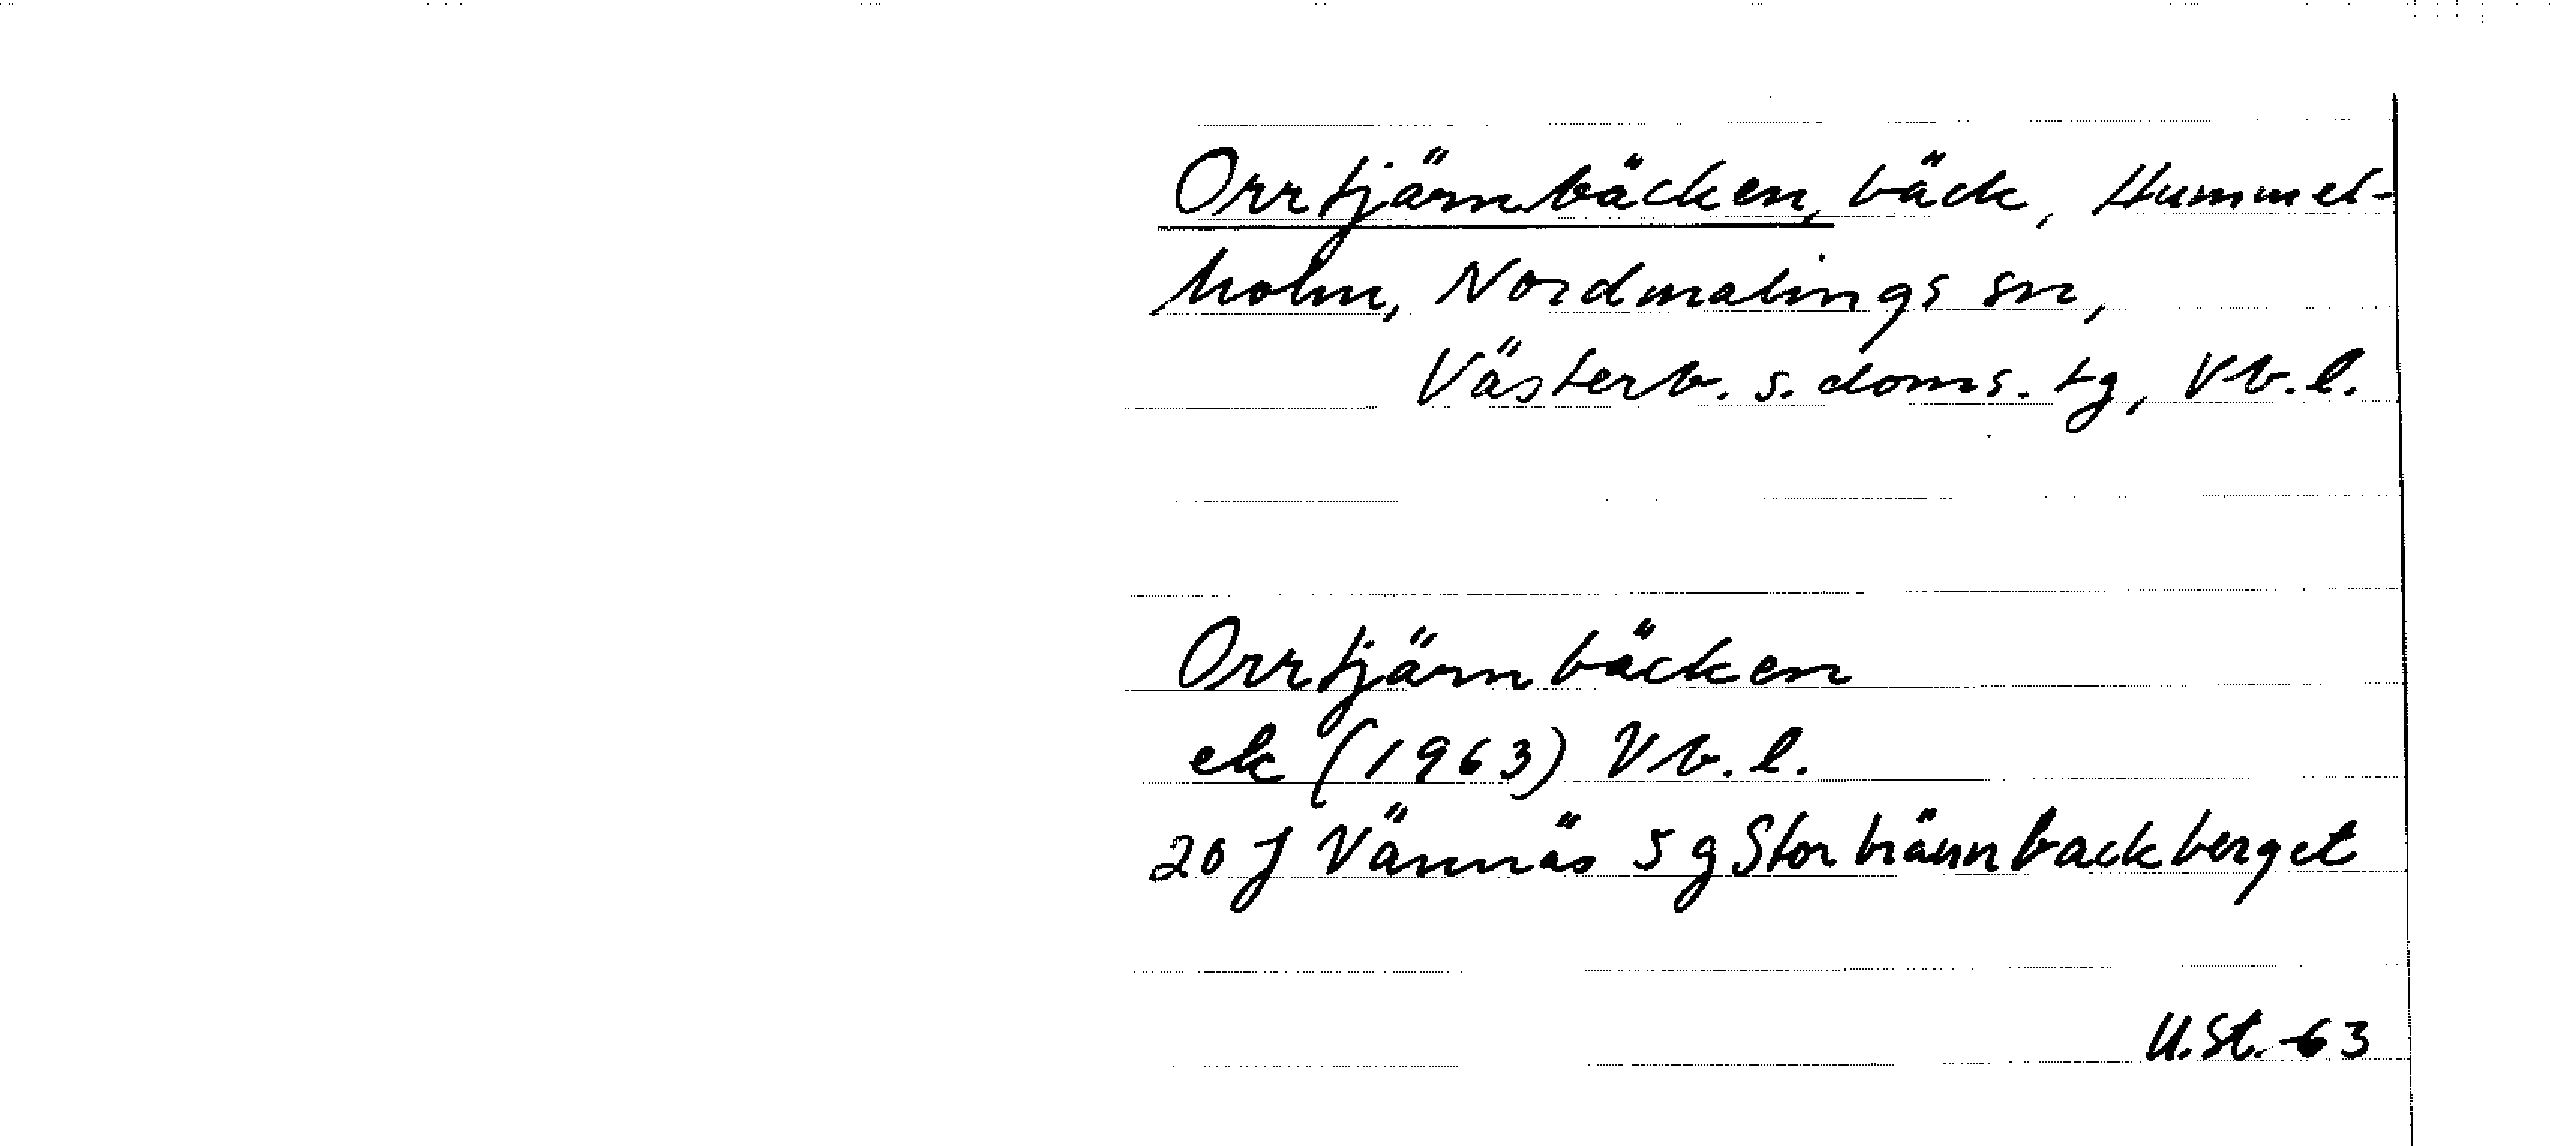 Orrtjärnbäcken, bäck, Hummel-
holm, Nordmalings sn,
Västerb. s. doms. tg, Vb. l.
Orrtjärnbäcken
ek (1963) Vb. l.
20 J Vännäs 5 g Storbrännbackberget
U. St. -63